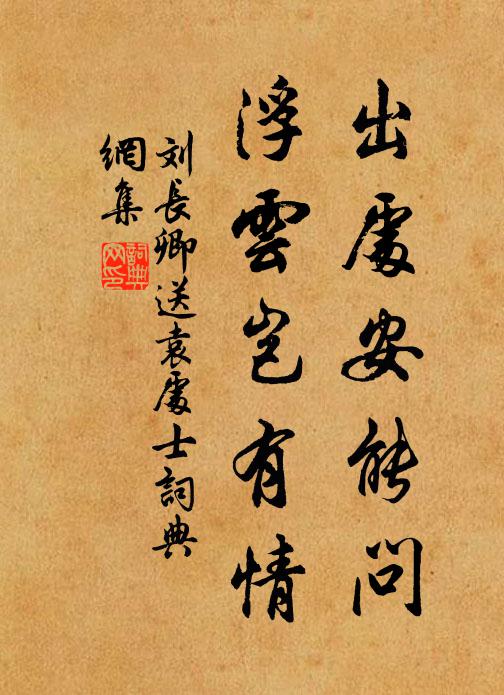 出處安能問
浮雲岂有情
刘長卿送袁處士詞典
網集
詞典
网印